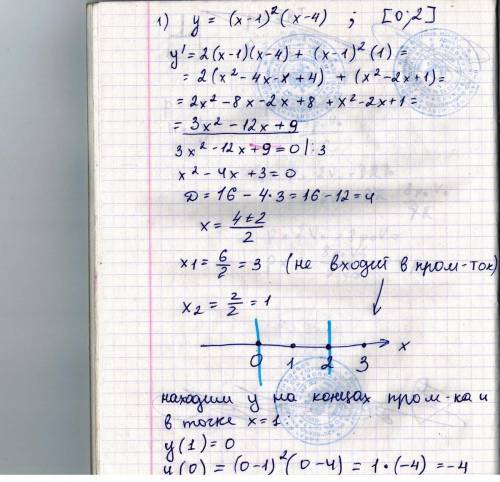 1) y = (x-1)²(x-4) ; [0;2]
y' = 2(x-1)(x-4) + (x-1)²(1) =
= 2(x²-4x-x+4) + (x²-2x+1) =
= 2x²-8x-2x+8+x²-2x+1 =
= 3x²-12x+9
3x²-12x+9=0 |:3
x²-4x+3=0
D=16-4·3=16-12=4
x = 4±2/2
x1 = 6/2 = 3 (не входит в пром-ток)
x2 = 2/2 = 1
0 1 2 3 x
находим y на концах пром-ка и
в точке x=1
y(1)=0
y(0) = (0-1)²(0-4) = 1·(-4) = -4